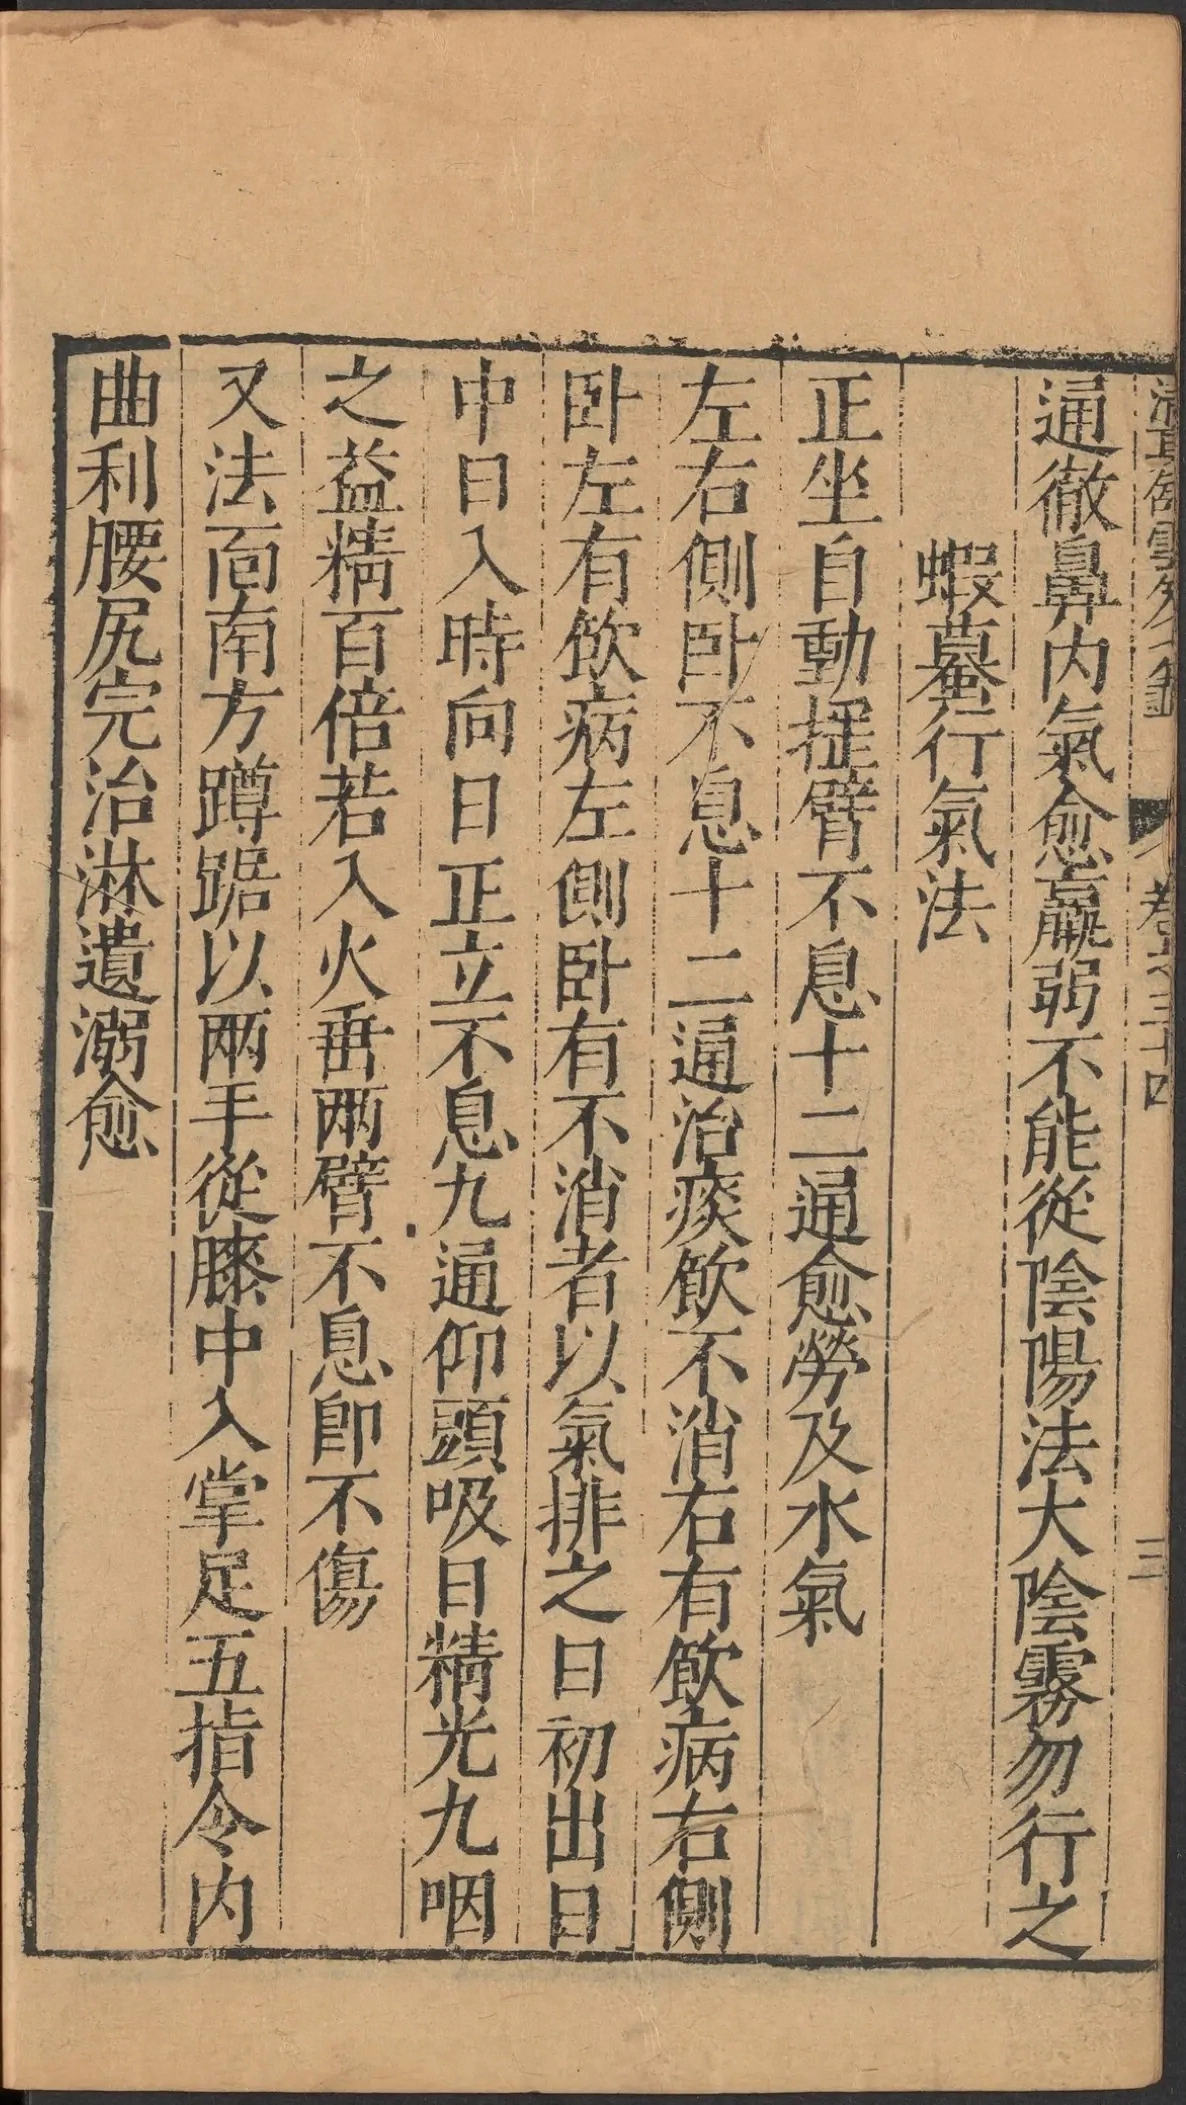 卷之三十四
三
通徹鼻内氣愈羸弱不能從陰陽法大陰霧勿行之
蝦蟇行氣法
正坐自動搖臂不息十二通愈勞及水氣
左右側卧不息十二通治痰飲不消右有飲病右側
卧左有飲病左側卧有不消者以氣排之日初出日
中日入時向日正立不息九通仰頭吸日精光九咽
之益精百倍若入火垂兩臂不息卽不傷
又法面南方蹲踞以兩手從膝中入掌足五指令内
曲利腰尻完治淋遺溺愈